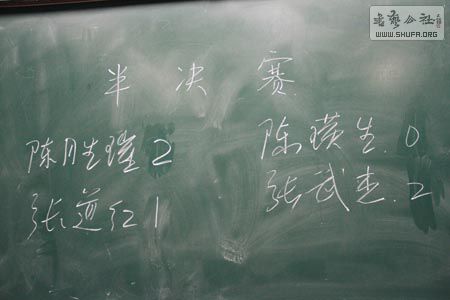 书艺公社
WWW.SHUFA.ORG
半决赛
陈胜瑾 2 陈瑛生.0
张道红 1 张武杰.2